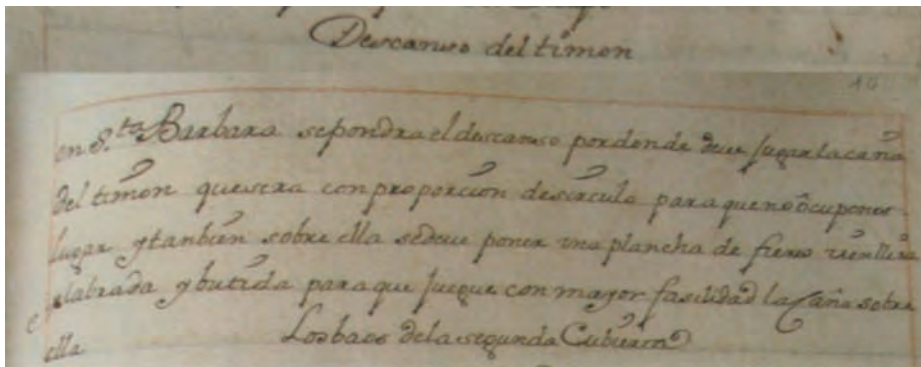 Descanso del timon
10
en S.ta Barbara sepondra el descanso por donde deue jugar la caña
del timon que sera con proporcion de sirculo para que no ocupe
lugar y tanbien sobre ella se deue poner vna plancha de fierro vien
labrada y butida para que juegue con mayor fasilidad la Caña sobre
ella
Los baos de la segunda Cubierta